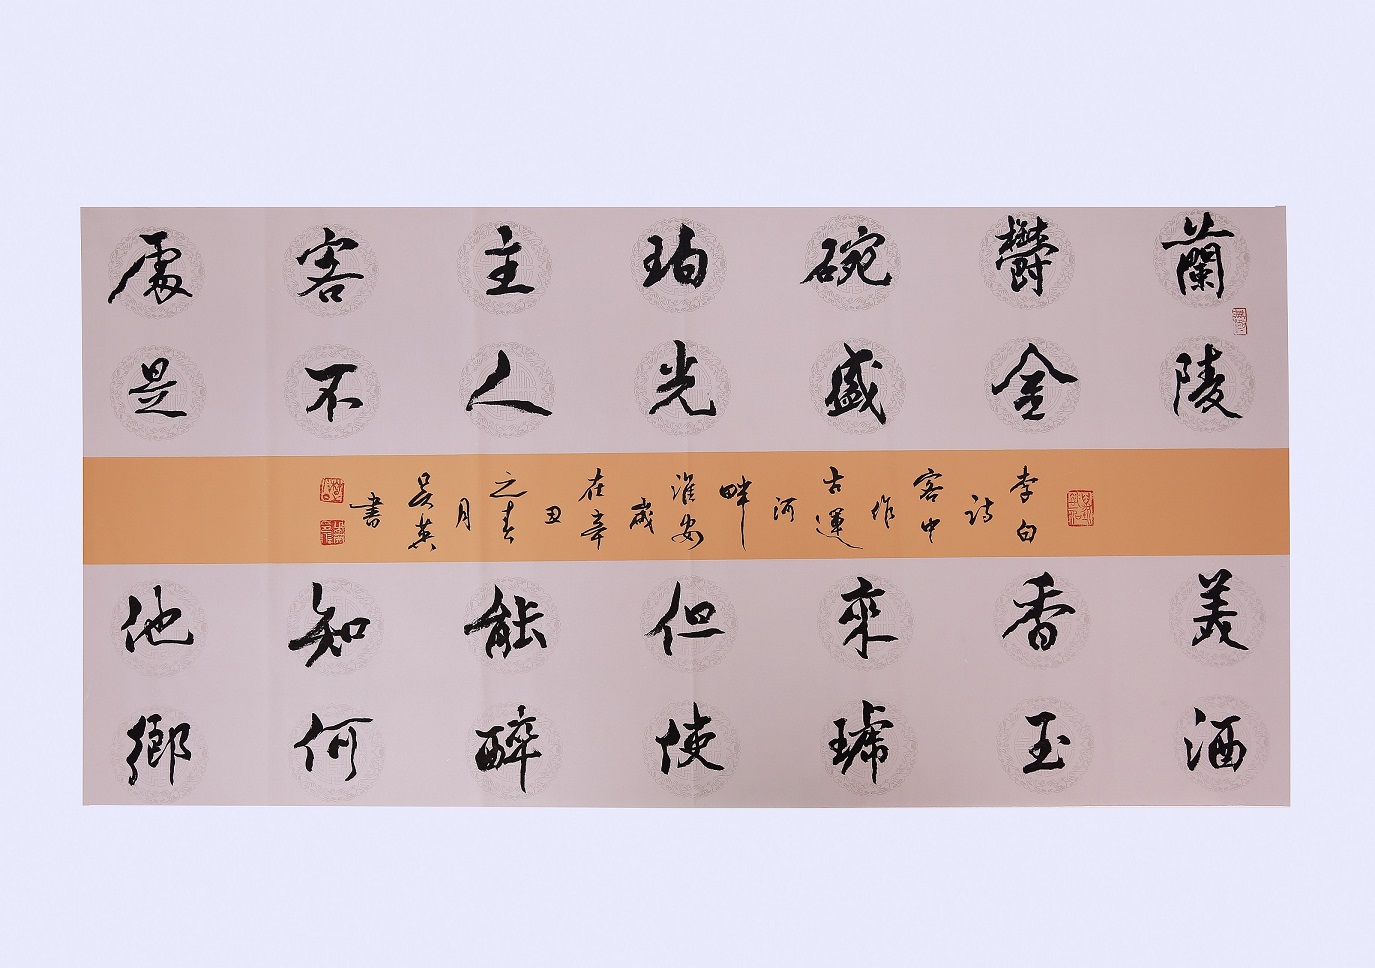 蘭陵美酒
鬱金香玉
碗盛來琥
珀光但使
主人能醉
客不知何
處是他鄉
李白詩客中作古運河畔淮安歲在辛丑之春月吳英書